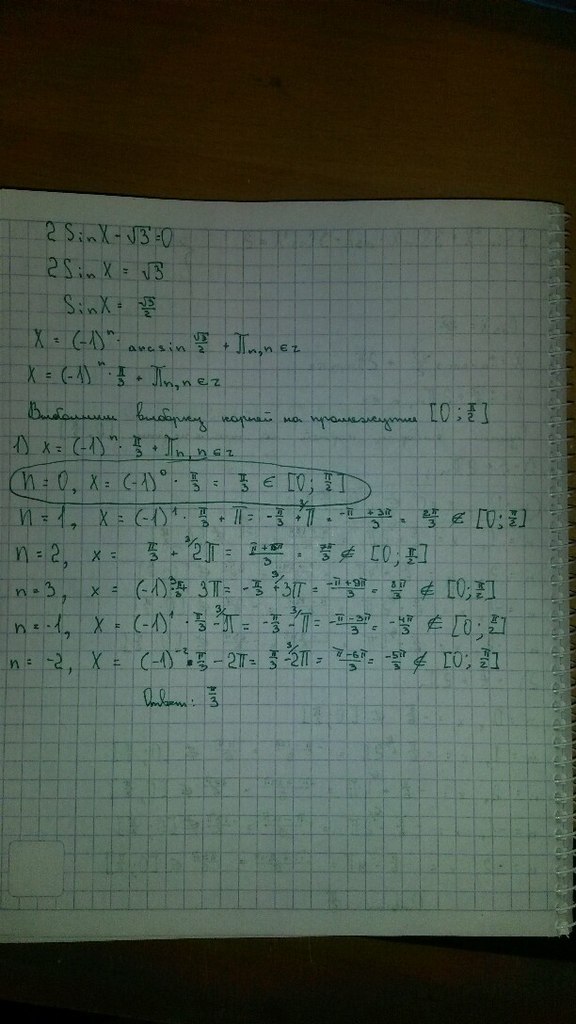 2 Sin X - √3 = 0
2 Sin X = √3
Sin X = √3/2
X = (-1)ⁿ · arcsin √3/2 + πn, n ∈ z
X = (-1)ⁿ · π/3 + πn, n ∈ z
Выполним выборку корней на промежутке [0; π/2]
1) x = (-1)ⁿ · π/3 + πn, n ∈ z
n = 0, x = (-1)⁰ · π/3 = π/3 ∈ [0; π/2]
n = 1, x = (-1)¹ · π/3 + π = -π/3 + ³/π = (-π + 3π)/3 = 2π/3 ∉ [0; π/2]
n = 2, x = π/3 + ³/2π = (π + 6π)/3 = 7π/3 ∉ [0; π/2]
n = 3, x = (-1)³ π/3 + 3π = -π/3 + ³/3π = (-π + 9π)/3 = 8π/3 ∉ [0; π/2]
n = -1, x = (-1)¹ · π/3 - ³/π = -π/3 - ³/π = (-π - 3π)/3 = -4π/3 ∉ [0; π/2]
n = -2, x = (-1)⁻² · π/3 - 2π = π/3 - ³/2π = (π - 6π)/3 = -5π/3 ∉ [0; π/2]
Ответ: π/3